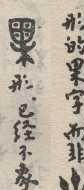 形的果字而非
形，已经不象